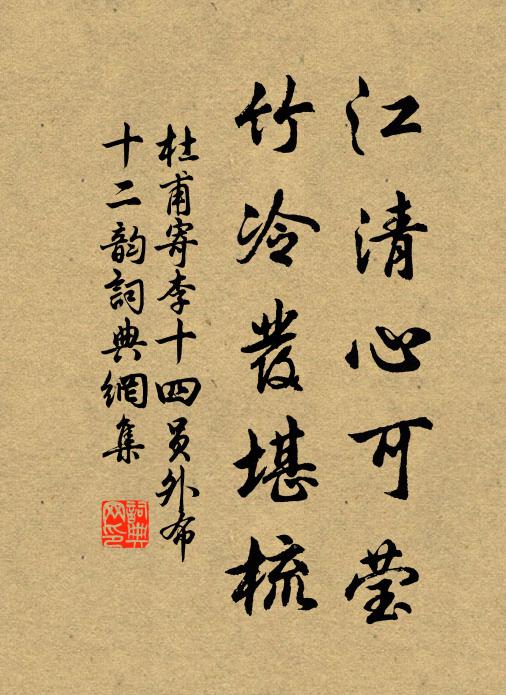 江清心可莹
竹冷發堪梳
杜甫寄李十四员外布
十二韵詞典網集
詞典
网印